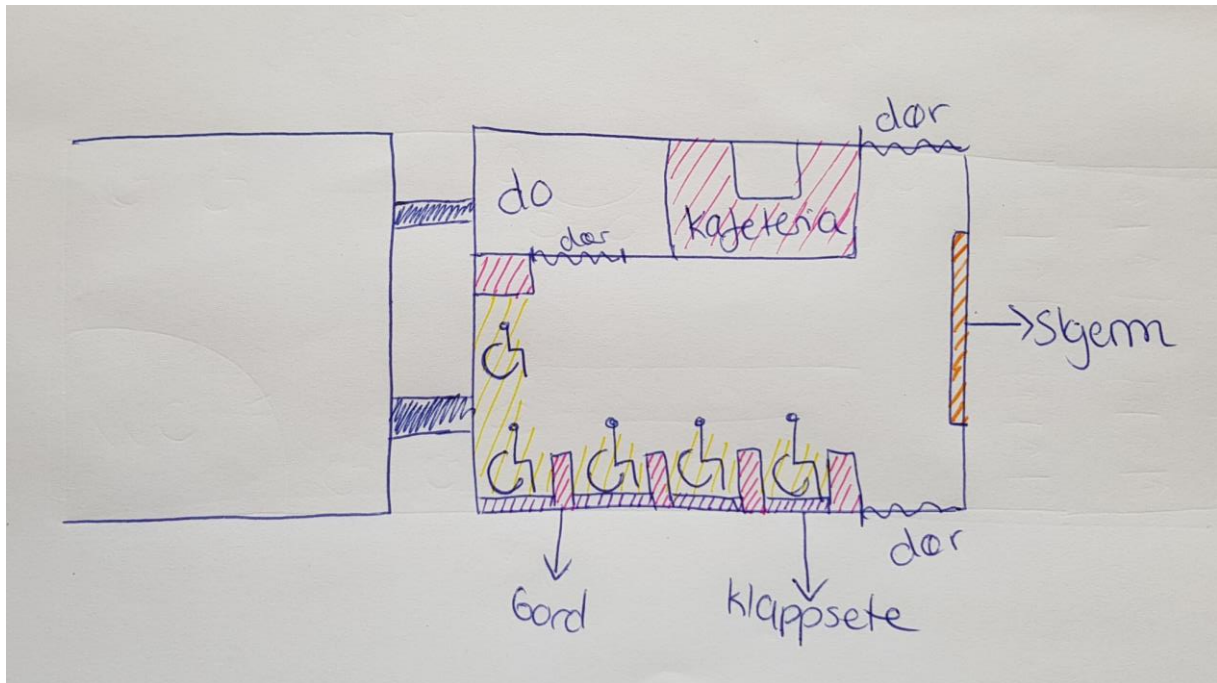 dør
do
dør
kafeteria
Skjerm
dør
bord
klappsete